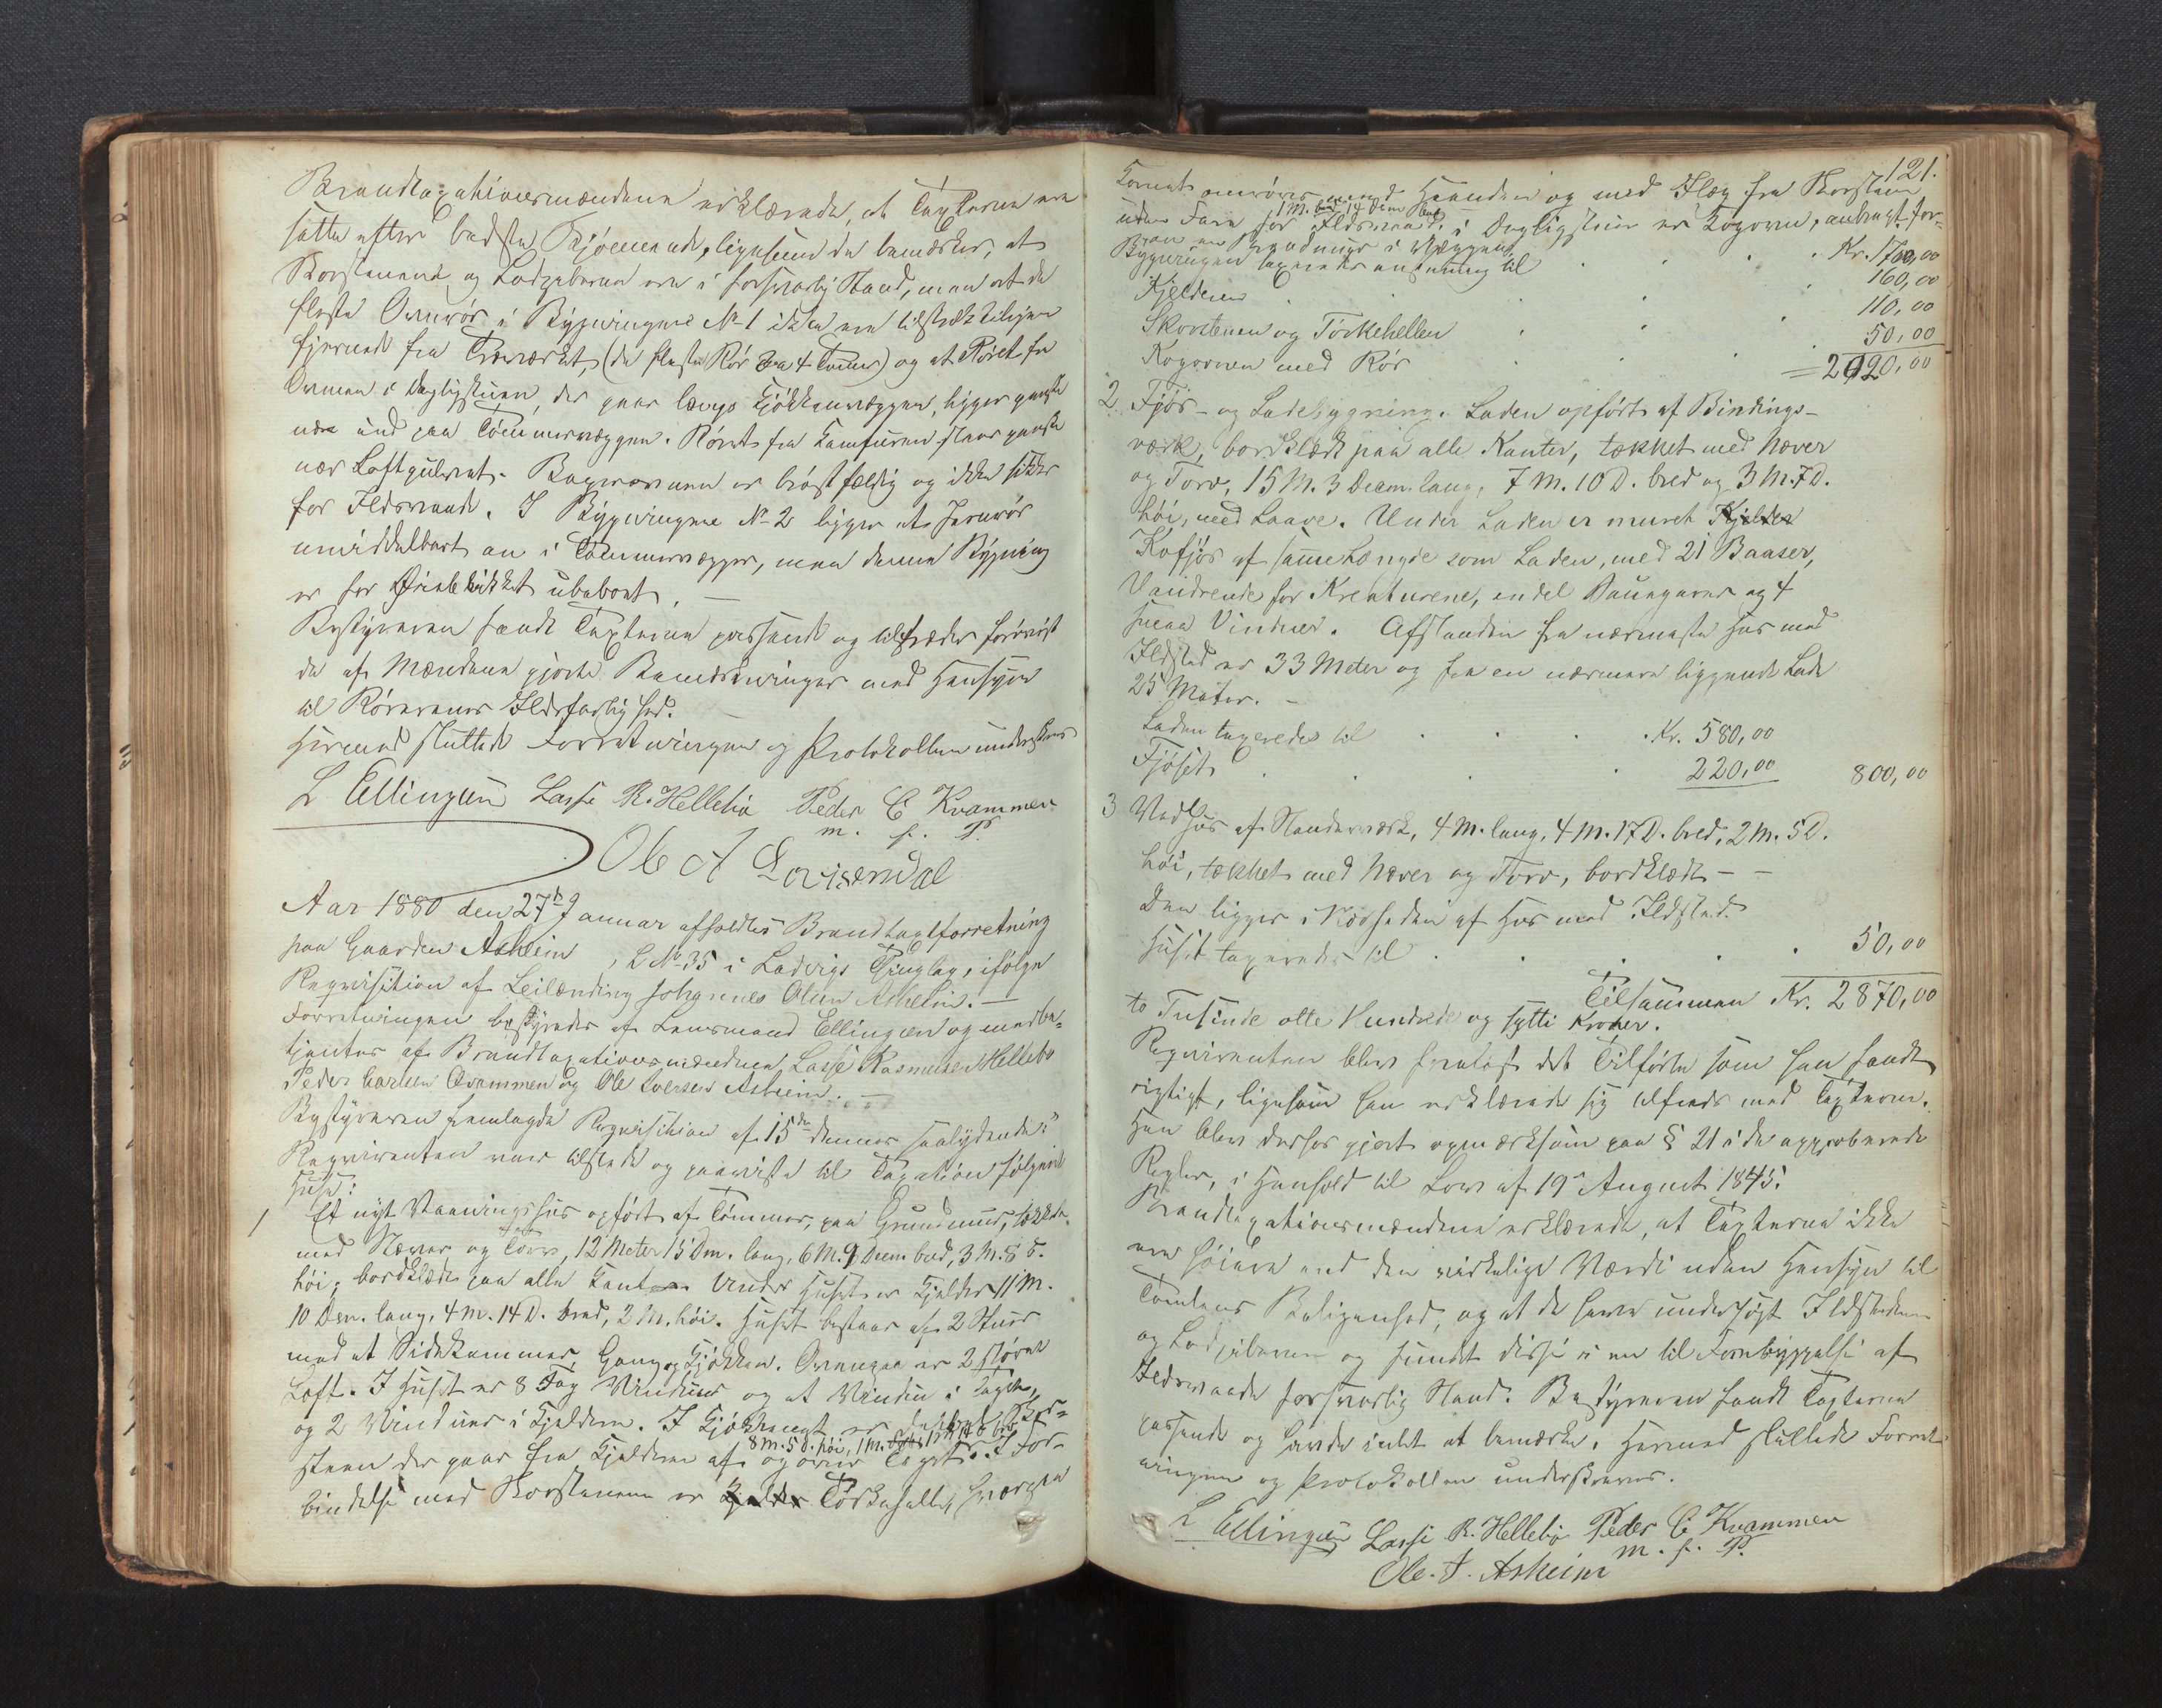 Brandtaxationsmændene erklærede, at Taxterne ere
satte efter bedste Skjønnende, ligesom de bemærker, at
Skorstenene og Ladgeberne ere i forsvarlig Stand, men at de
fleste Ovnrör i Bygningene No 1 ikke ere tilstrækkeligen
fjernede fra Træværket, (de fleste Rör ca 4 Tomer) og at Röret fra
Ovnen i Dagligstuen, der gaar langs Kjökkenvæggen, ligger ganske
nær ind paa Tömmervæggen. Röret fra Komfuren staar ganske
nær Loftgulvet. Bagerovnen er bröstfældig og ikke sikker
for Ildsvaade. I Bygningene No 2 ligger et Jernrör
umiddelbart an i Tömmervægger, men denne Bygning
er for Øieblikket ubeboet. —
Bestyreren fandt Taxterne passende og tiltræder forövrigt
de af Mændene gjorte Bemærkninger med Hensyn
til Rörenes Ildsfarlighed. —
Hermed sluttede Forretningen og Protokollen underskreves
L Ellingsen Lasse R. Hellebö Peder C Kvammen
m. f. P.
Ole A Lovisendal
Aar 1880 den 27de Januar afholdtes Brandtaxtforretning
paa Gaarden Askeim, L No 35 i Ladvigs Thinglag, ifölge
Requisition af Leilænding Johannes Olsen Askeim. —
Forretningen bestyredes af Lensmand Ellingsen og medbe-
tjentes af Brandtaxationsmændene Lasse Rasmussen Hellebö
Peder Carlsen Qvammen og Ole Iversen Askeim. —
Bestyreren fremlagde Requisition af 15de dennes saalydende:
Requirenten var tilstede og paaviste til Taxation følgende
Huse:
1 Et nyt Vaaningshus opfört af Tömmer, paa Grundmur, tækket
med Næver og Torv, 12 Meter 15 Dm. lang, 6 M. 9 Decm bred, 3 M. 8 D.
höi, bordklædt paa alle Kanter. Under Huset er Kjelder 11 M.
10 Dm. lang, 4 M. 14 D. bred, 2 M. höi. Huset bestaar af 2 Stuer
med et Sidekammer, Gang og Kjökken. Ovenpaa er 2 större
Loft. I Huset er 8 Fag Vinduer og et Vindu i Taget,
og 2 Vinduer i Kjelderen. I Kjökkenet er dobbelt Skor-
8 m. 5 D. höi, 1 M.
steen der gaar fra Kjelderen af og over Taget. I For-
bindelse med Skorstenen er Törkehelle, hvorpaa
121.
Kornet omröres med Haanden og med Ilæg fra Skorstenen
uden Fare for Ildsvaade. i Dagligstuen er Kogovn, anbragt for-
an en Brandmuur i Væggen
Bygningen taxeredes ansættning til . . . . Kr. 1700,00
Kjelderen . . . . 160,00
Skorstenen og Törkehellen . . . 110,00
Kogovnen med Rör . . . . 50,00
= 2020,00
2 Fjös- og Ladebygning. Laden opfört af Bindings-
værk, bordklædt paa alle Kanter, tækket med Næver
og Torv, 15 M. 3 Decm. lang, 7 M. 10 D. bred og 3 M. 7 D.
höi, med Laave. Under Laden er muret Kjelder
Kofjös af samme Længde som Laden, med 21 Baaser,
Vandrende for Kreaturene, endel Baasgarner og 4
smaa Vinduer. Afstanden fra nærmeste Hus med
Ildsted er 33 Meter og fra en nærmere liggende Lade
25 Meter. —
Laden taxeredes til . . . . Kr. 580,00
Fjöset . . . . 220,00 800,00
3 Vedhus af Standerværk, 4 M. lang, 4 M. 17 D. bred, 2 M. 5 D.
höi, tækket med Næver og Torv, bordklædt — —
Den ligger i Nærheden af Hus med Ildsted.
Huset taxeredes til . . . . 50,00
Tilsammen Kr. 2870,00
to Tusinde otte Hundrede og sytti Kroner.
Requirenten blev forelæst det Tilförte som han fandt
rigtigt, ligesom han erklærede sig tilfreds med Taxterne.
Han blev derfor gjort opmærksom paa § 21 i de approberede
Regler, i Henhold til Lov af 19de August 1845.
Brandtaxationsmændene erklærede, at Taxterne ikke
ere höiere end den virkelige Værdi uden Hensyn til
Tomtens Beliggenhed, og at de have undersögt Ildstederne
og Ladgeberne og fundet disse i en til Forebyggelse af
Ildsvaade forsvarlig Stand. Bestyreren fandt Taxterne
passende og havde intet at bemærke. Hermed sluttede Forret-
ningen og Protokollen underskreves.
L Ellingsen Lasse R. Hellebö Peder C Kvammen
m. f. P.
Ole. I. Askeim